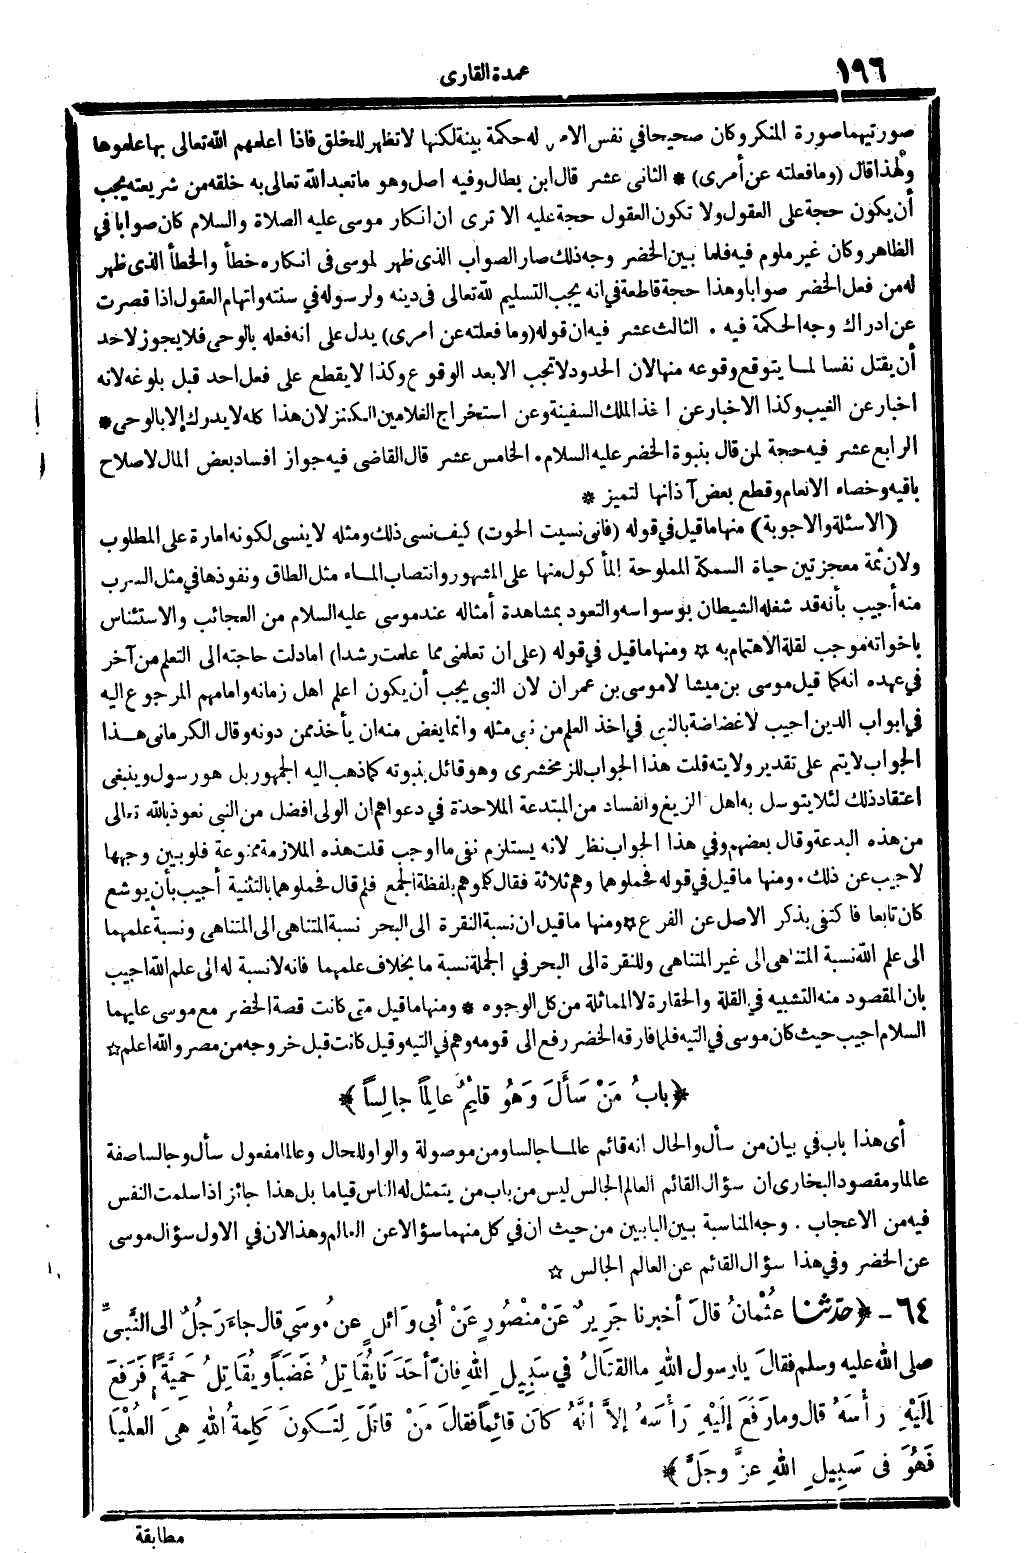 ١٩٦
عمدة القارى
صورتيهما صورة المنكر وكان صحيحا في نفس الامر له حكمة بينة لكنها لا تظهر للخلق فاذا اعلمهم الله تعالى بها علموها
ولهذا قال (وما فعلته عن أمرى) * الثانى عشر قال ابن بطال وفيه اصل وهو ما تعبد الله تعالى به خلقه من شريعته يجب
أن يكون حجة على العقول ولا تكون العقول حجة عليه الا ترى ان انكار موسى عليه الصلاة والسلام كان صوابا في
الظاهر وكان غير ملوم فيه فلما بين الخضر وجه ذلك صار الصواب الذى ظهر لموسى فى انكاره خطأ والخطأ الذى ظهر
له من فعل الخضر صوابا وهذا حجة قاطعة في انه يجب التسليم لله تعالى فى دينه ولرسوله في سنته واتهام العقول اذا قصرت
عن ادراك وجه الحكمة فيه . الثالث عشر فيه ان قوله (وما فعلته عن امرى) يدل على انه فعله بالوحى فلا يجوز لاحد
أن يقتل نفسا لما يتوقع وقوعه منها لان الحدود لا تجب الا بعد الوقوع وكذا لا يقطع على فعل احد قبل بلوغه لانه
اخبار عن الغيب وكذا الاخبار عن اخذ الملك السفينة وعن استخراج الغلامين الكنز لان هذا كله لا يدرك إلا بالوحى *
الرابع عشر فيه حجة لمن قال بنبوة الخضر عليه السلام . الخامس عشر قال القاضى فيه جواز افساد بعض المال لاصلاح
باقيه وخصاء الانعام وقطع بعض آذانها لتميز *
(الاسئلة والاجوبة) منها ما قيل في قوله (فانى نسيت الحوت) كيف نسى ذلك ومثله لا ينسى لكونه امارة على المطلوب
ولان ثمة معجزتين حياة السمكة المملوحة المأكول منها على المشهور وانتصاب الماء مثل الطاق ونفوذها في مثل السرب
منه أجيب بأنه قد شغله الشيطان بوسواسه والتعود بمشاهدة أمثاله عند موسى عليه السلام من العجائب والاستئناس
باخواته موجب لقلة الاهتمام به ☆ ومنها ما قيل في قوله (على ان تعلمنى مما علمت رشدا) اما دلت حاجته الى التعلم من آخر
في عهده انه كما قيل موسى بن ميشا لا موسى بن عمران لان النبى يجب أن يكون اعلم اهل زمانه وامامهم المرجوع اليه
في ابواب الدين اجيب لا غضاضة بالنبى في اخذ العلم من نبى مثله وانما يغض منه ان يأخذ ممن دونه وقال الكرمانى هذا
الجواب لا يتم على تقدير ولايته قلت هذا الجواب للزمخشرى وهو قائل بنبوته كما ذهب اليه الجمهور بل هو رسول وينبغى
اعتقاد ذلك لئلا يتوسل به اهل الزيغ والفساد من المبتدعة الملاحدة في دعواهم ان الولى افضل من النبى نعوذ بالله تعالى
من هذه البدعة وقال بعضهم وفي هذا الجواب نظر لانه يستلزم نفى ما اوجب قلت هذه الملازمة ممنوعة فلو بين وجهها
لاجيب عن ذلك . ومنها ما قيل في قوله فحملوهما وهم ثلاثة فقال كلموهم بلفظة الجمع فلم قال فحملوهما بالتثنية أجيب بأن يوشع
كان تابعا فاكتفى بذكر الاصل عن الفرع ☆ ومنها ما قيل ان نسبة النقرة الى البحر نسبة المتناهى الى المتناهى ونسبة علمهما
الى علم الله نسبة المتناهى الى غير المتناهى وللنقرة الى البحر في الجملة نسبة ما بخلاف علمهما فانه لا نسبة له الى علم الله اجيب
بان المقصود منه التشبيه في القلة والحقارة لا المماثلة من كل الوجوه * ومنها ما قيل متى كانت قصة الخضر مع موسى عليهما
السلام اجيب حيث كان موسى في التيه فلما فارقه الخضر رفع الى قومه وهم في التيه وقيل كانت قبل خروجه من مصر والله اعلم ☆
﴿باب مَنْ سَأَلَ وَهُوَ قائِمٌ عالِمًا جالِسًا﴾
أى هذا باب في بيان من سأل والحال انه قائم عالما جالسا ومن موصولة والواو للحال وعالما مفعول سأل وجالسا صفة
عالما ومقصود البخارى ان سؤال القائم العالم الجالس ليس من باب من يتمثل له الناس قياما بل هذا جائز اذا سلمت النفس
فيه من الاعجاب . وجه المناسبة بين البابين من حيث ان في كل منهما سؤالا عن العالم وهذا لان في الاول سؤال موسى
عن الخضر وفي هذا سؤال القائم عن العالم الجالس ☆
٦٤ - ﴿حدّثنا عُثْمانُ قالَ أخبرنا جَرِيرٌ عَنْ مَنْصُورٍ عَنْ أبى وَائلٍ عن مُوسَى قال جاءَ رَجُلٌ الى النَّبىِّ
صلى الله عليه وسلم فقالَ يارسول اللهِ ما القتالُ في سَبِيلِ اللهِ فانَّ أحَدَنَا يُقَاتِلُ غَضَبًا ويُقَاتِلُ حَمِيَّةً فَرَفَعَ
إلَيْهِ رأْسَهُ قال وما رَفَعَ إلَيْهِ رَأْسَهُ إلاَّ أنَّهُ كانَ قائِمًا فقالَ مَنْ قاتَلَ لِتَكونَ كَلِمةُ اللهِ هىَ العُلْيَا
فَهُوَ فى سَبِيلِ اللهِ عزَّ وجَلَّ﴾
مطابقة